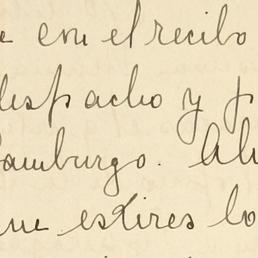 e con el recibo
despacho y p
Hamburgo. Ah
que estires lo